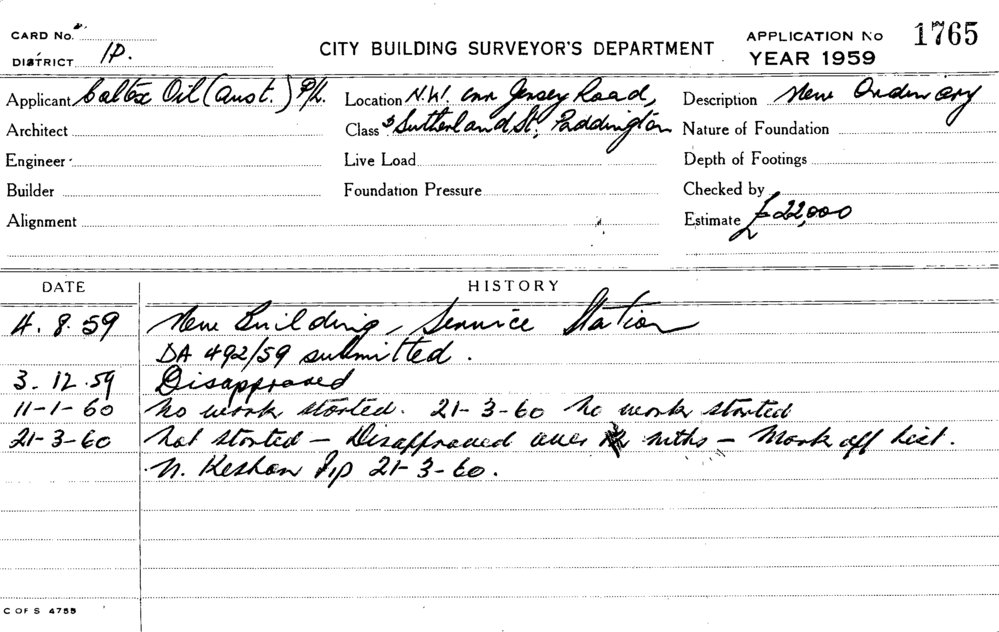 CARD No.
DISTRICT 1P.
CITY BUILDING SURVEYOR'S DEPARTMENT
APPLICATION No 1765
YEAR 1959
Applicant Caltex Oil (Aust.) P/L. Location N.W. cnr Jersey Road, Description New Ordinary
Architect Class & Sutherland St, Paddington Nature of Foundation
Engineer Live Load Depth of Footings
Builder Foundation Pressure Checked by
Alignment Estimate £22,000
DATE HISTORY
4.8.59 New Building, Service Station
DA 492/59 submitted.
3.12.59 Disapproved
11-1-60 No work started. 21-3-60 No work started
21-3-60 Not started - Disapproved over mths - Mark off list.
N. 21-3-60.
C OF S 4755